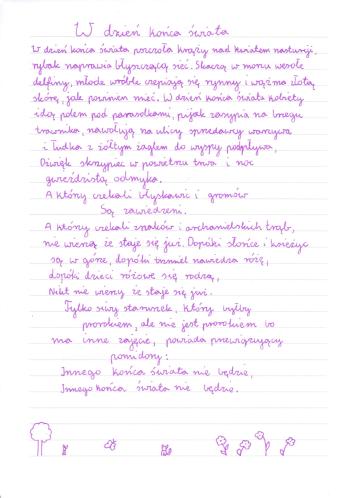 W dzień końca świata
W dzień końca świata pszczoła krąży nad kwiatem nasturcji,
rybak naprawia błyszczącą sieć. Skaczą w morzu wesołe
delfiny, młode wróble czepiają się rynny i wąż ma złotą
skórę, jak powinien mieć. W dzień końca świata kobiety
idą polem pod parasolkami, pijak zasypia na brzegu
trawnika, nawołują na ulicy sprzedawcy warzywa
i łódka z żółtym żaglem do wyspy podpływa,
Dźwięk skrzypiec w powietrzu trwa i noc
gwieździstą odmyka.
A którzy czekali błyskawic i gromów
Są zawiedzeni.
A którzy czekali znaków i archanielskich trąb,
nie wierzą że staje się już. Dopóki słońce i księżyc
są w górze, dopóki trzmiel nawiedza różę,
dopóki dzieci różowe się rodzą,
Nikt nie wierzy że staje się już.
Tylko siwy staruszek, który byłby
prorokiem, ale nie jest prorokiem bo
ma inne zajęcie, powiada przewiązując
pomidory:
Innego końca świata nie będzie,
Innego końca świata nie będzie.